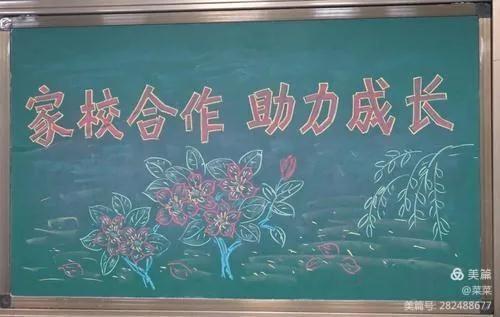 家校合作 助力成长
美篇
@菜菜
美篇号: 282488677